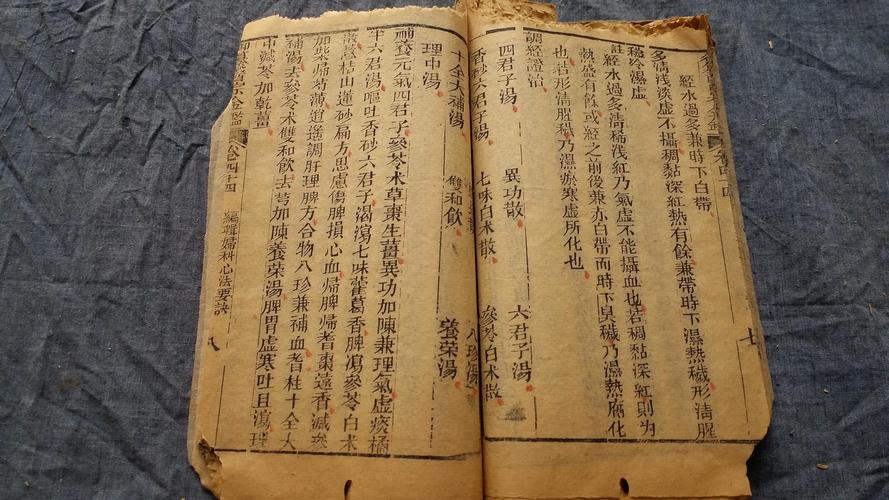 經水過多兼時下白帶
多清淺淡虛不攝稠黏深紅熱有餘兼帶時下濕熱穢形清腥
穢冷濕虛
註經水過多清稀淺紅乃氣虛不能攝血也若稠黏深紅則为
熱盛有餘或經之前後兼赤白帶而時下臭穢乃濕熱腐化
也若形清腥穢乃濕瘀寒虛所化也
調經證治
四君子湯 異功散 六君子湯
香砂六君子湯 七味白术散 參苓白术散
十全大補湯 雙和飲 八珍湯 養榮湯
理中湯
補養元氣四君子參苓术草棗生薑異功加陳兼理氣虛痰橘
半六君湯嘔吐香砂六君子渴瀉七味藿葛香脾瀉參苓白术
散薏桔山蓮砂扁方思慮傷脾損心血歸脾歸耆棗遠香減參
加柴歸芍薄逍遙調肝理脾方合物八珍兼補血耆桂十全大
補湯去參苓术雙和飲去芎加陳養榮湯脾胃虛寒吐且瀉理
中減苓加乾薑
金鑑 卷四十四 編輯婦科心法要訣 八